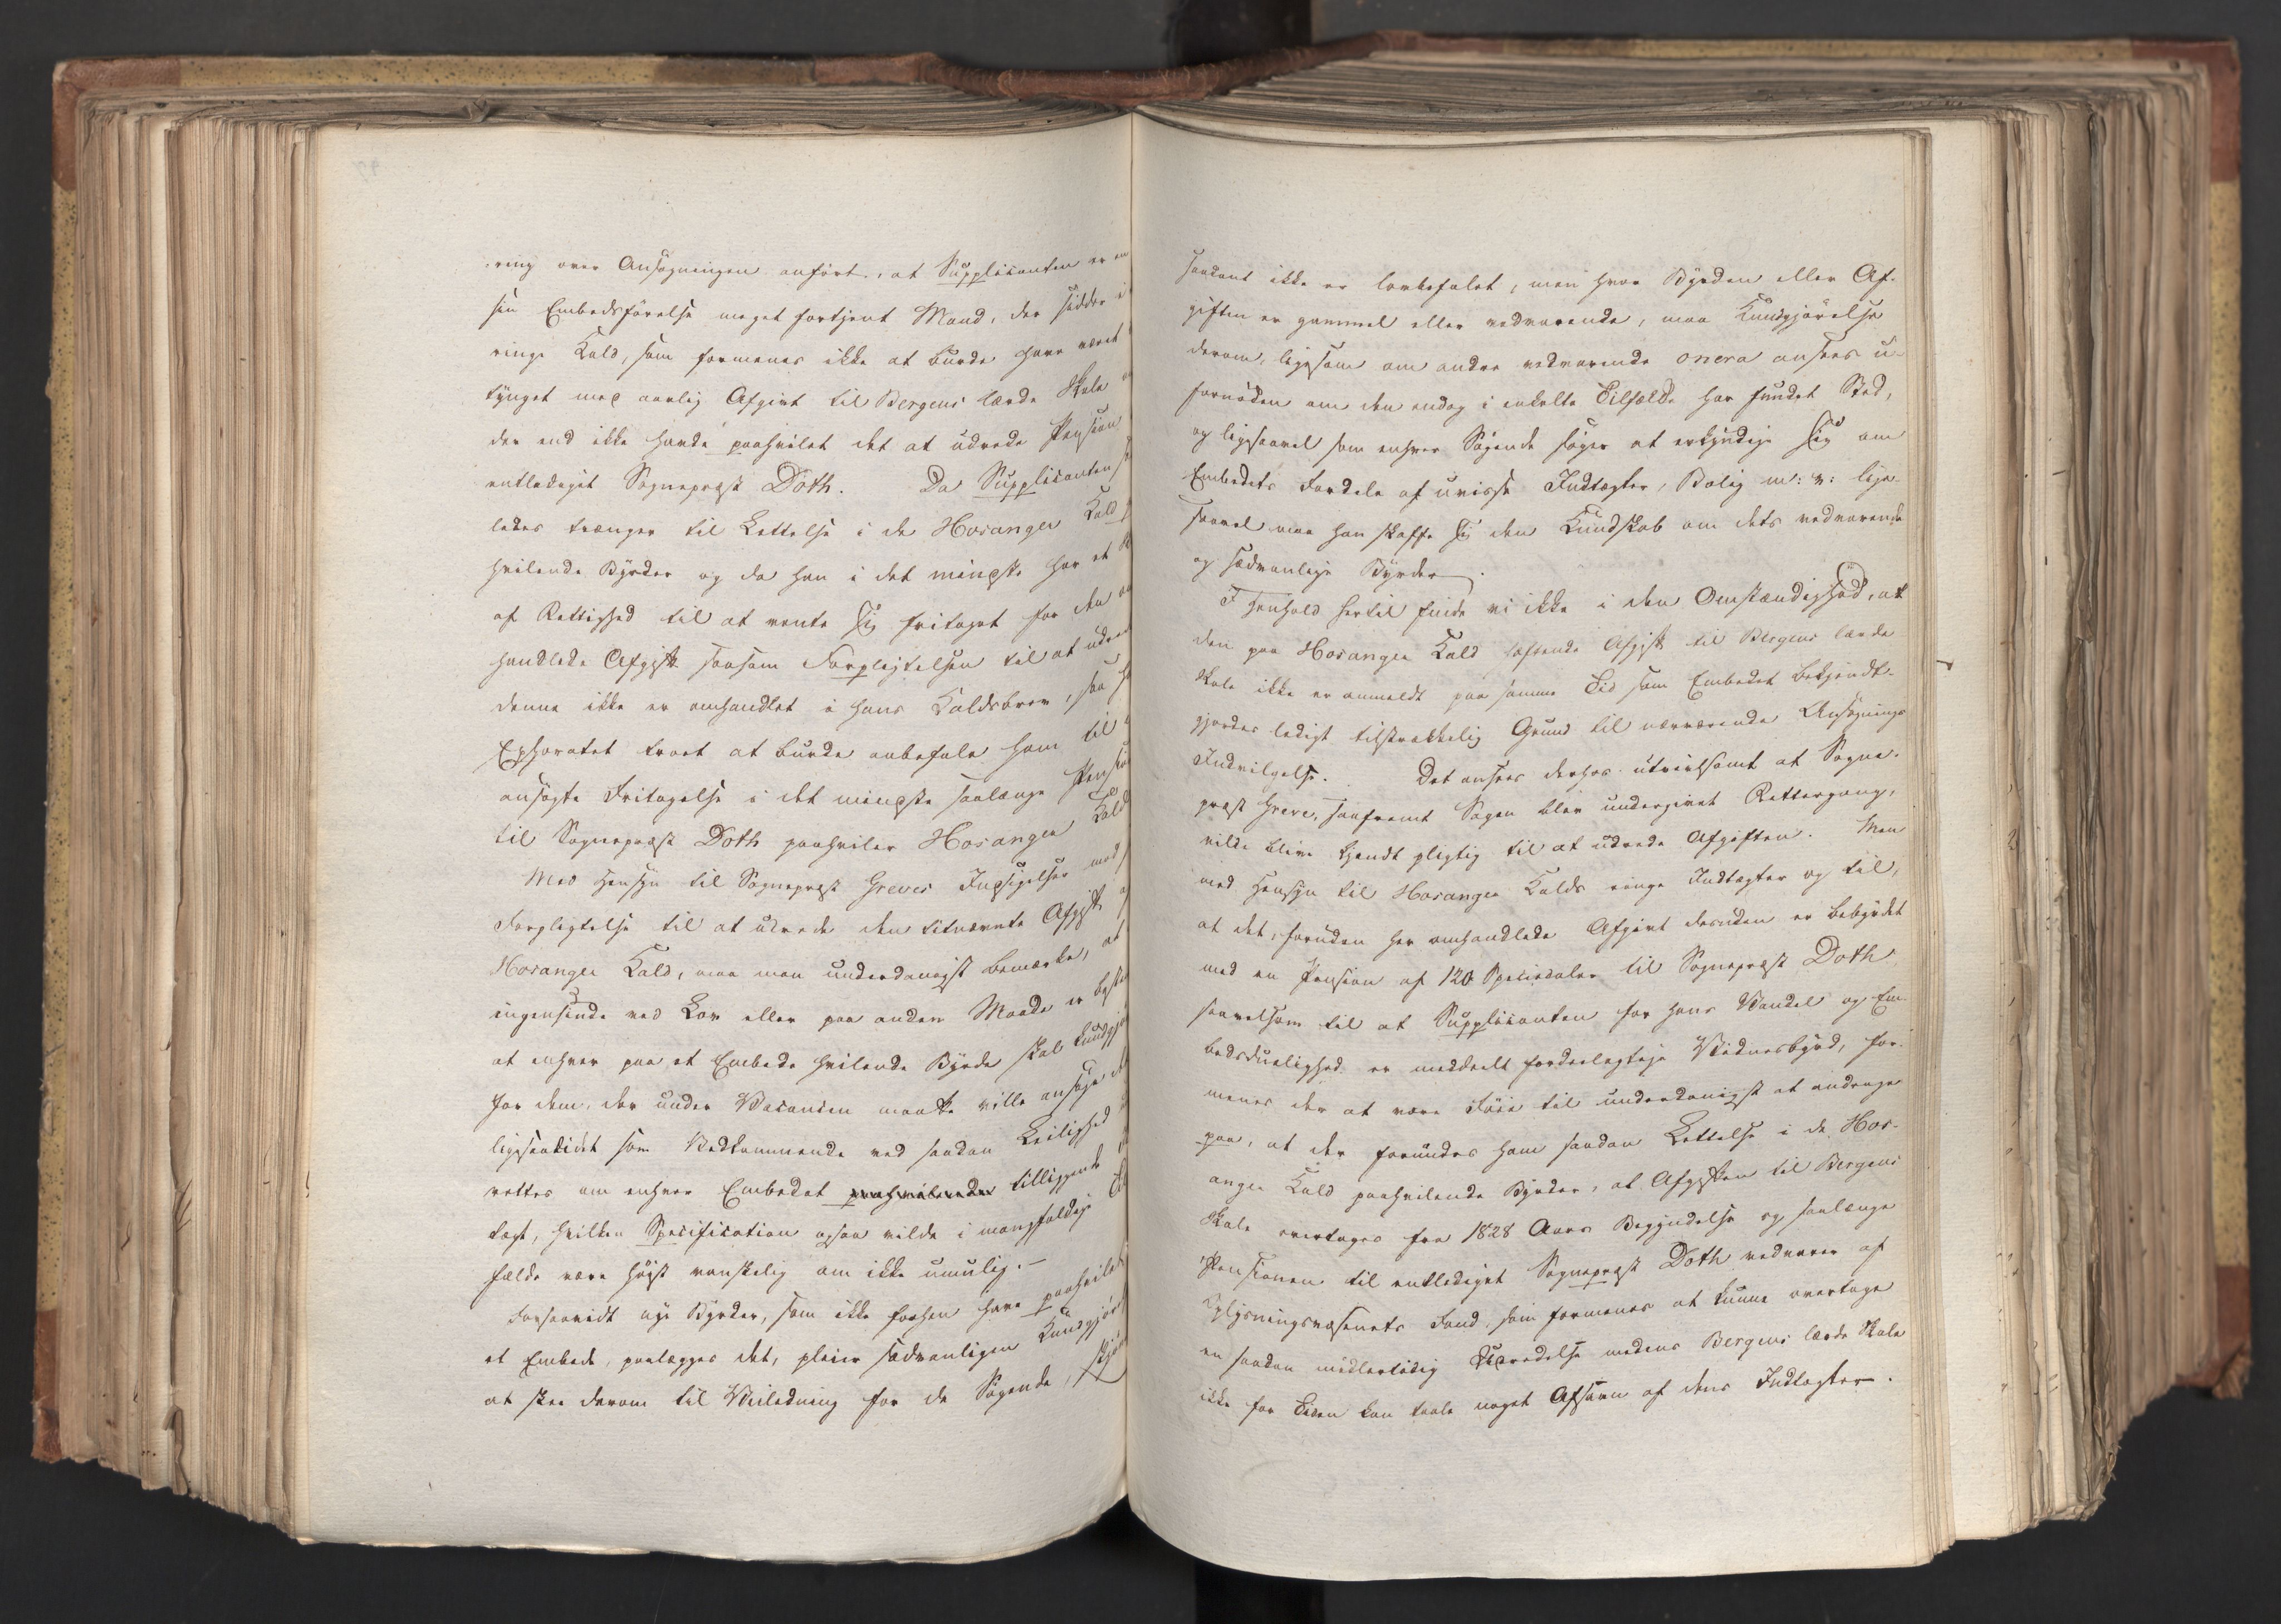 ring over Ansøgningen anført, at Supplicanten er en
sin Embedsførelse meget fortjent Mand, der sidder i
ringe Kald, som formenes ikke at burde have været
tynget med aarlig Afgivt til Bergens lærde Skole
der end ikke havde paahvilet det at udrede Pension
entlediget Sognepræst Doth. Da Supplicanten
ledes trænger til Lettelse i de Hosanger Kald
hvilende Byrder og da han i det mindste har et
af Rettighed til at vente sig fritaget for den
handlede Afgift saasom Forpligtelsen til at udrede
denne ikke er omhandlet i hans Kaldsbrev, saa
Ephoratet troet at burde anbefale ham til
ansøgte Fritagelse i det mindste saalænge Pension
til Sognepræst Doth paahviler Hosanger Kald
Med Hensyn til Sognepræst Greves Indsigelser mod
Forpligtelse til at udrede den titnævnte Afgift
Hosanger Kald, maa man underdanigst bemærke, at
ingensinde ved Lov eller paa anden Maade er
at enhver paa et Embede hvilende Byrde skal kundgjø
for dem, der under Vacancen maatte ville ansøge
ligesaalidet som Vedkommende ved saadan Leilighed
rettes om enhver Embedet paahvilende tilliggende
tægt, hvilken Specification ogsaa vilde i mangfoldige
fælde være høist vanskelig om ikke umulig.-
Forsaavidt nye Byrder, som ikke forhen have paahvilet
et Embede, paalægges det, pleier sædvanligen Kundgjør
at skee derom til Veiledning for de Søgende,
saadant ikke er lovbefalet, men hvor Byrden eller Af-
giften er gammel eller vedvarende, maa Kundgjørelse
derom, ligesom om andre vedvarende onera ansees u-
fornøden om den endog i enkelte Tilfælde har fundet Sted,
og ligesaavel som enhver Søgende søger at erkyndige sig om
Embedets Fordele af uvisse Indtægter, Bolig m: v: lige-
saavel maa han skaffe sig den Kundskab om dets vedvarende
og sædvanlige Byrder.
I Henhold hertil finde vi ikke i den Omstændighed, at
den paa Hosanger Kald heftende Afgift til Bergens lærde
Skole ikke er anmeldt paa samme Tid som Embedet bekjendt-
gjordes ledigt tilstrækkelig Grund til nærværende Ansøgnings
Indvilgelse. Det ansees derhos utvivlsomt at Sogne-
præst Greve, saafremt Sagen blev undergivet Rettergang,
vilde blive kjendt pligtig til at udrede Afgiften. Men
med Hensyn til Hosanger Kalds ringe Indtægter og til,
at det, foruden her omhandlede Afgivt desuden er bebyrdet
med en Pension af 120 Speciedaler til Sognepræst Doth
saavelsom til at Supplicanten for hans Vandel og Em-
bedsduelighed er meddeelt fordeelagtige Vidnesbyrd, for-
menes der at være Føie til underdanigst at andrage
paa, at der forundes ham saadan Lettelse i de Hos-
anger Kald paahvilende Byrder, at Afgiften til Bergens
Skole overtages fra 1828 Aars Begyndelse og saalænge
Pensionen til entlediget Sognepræst Doth vedvarer af
Oplysningsvæsenets Fond, som formenes at kunne overtage
en saadan midlertidig Udredelse medens Bergens lærde Skole
ikke for Tiden kan taale noget Afsavn af dens Indtægter.